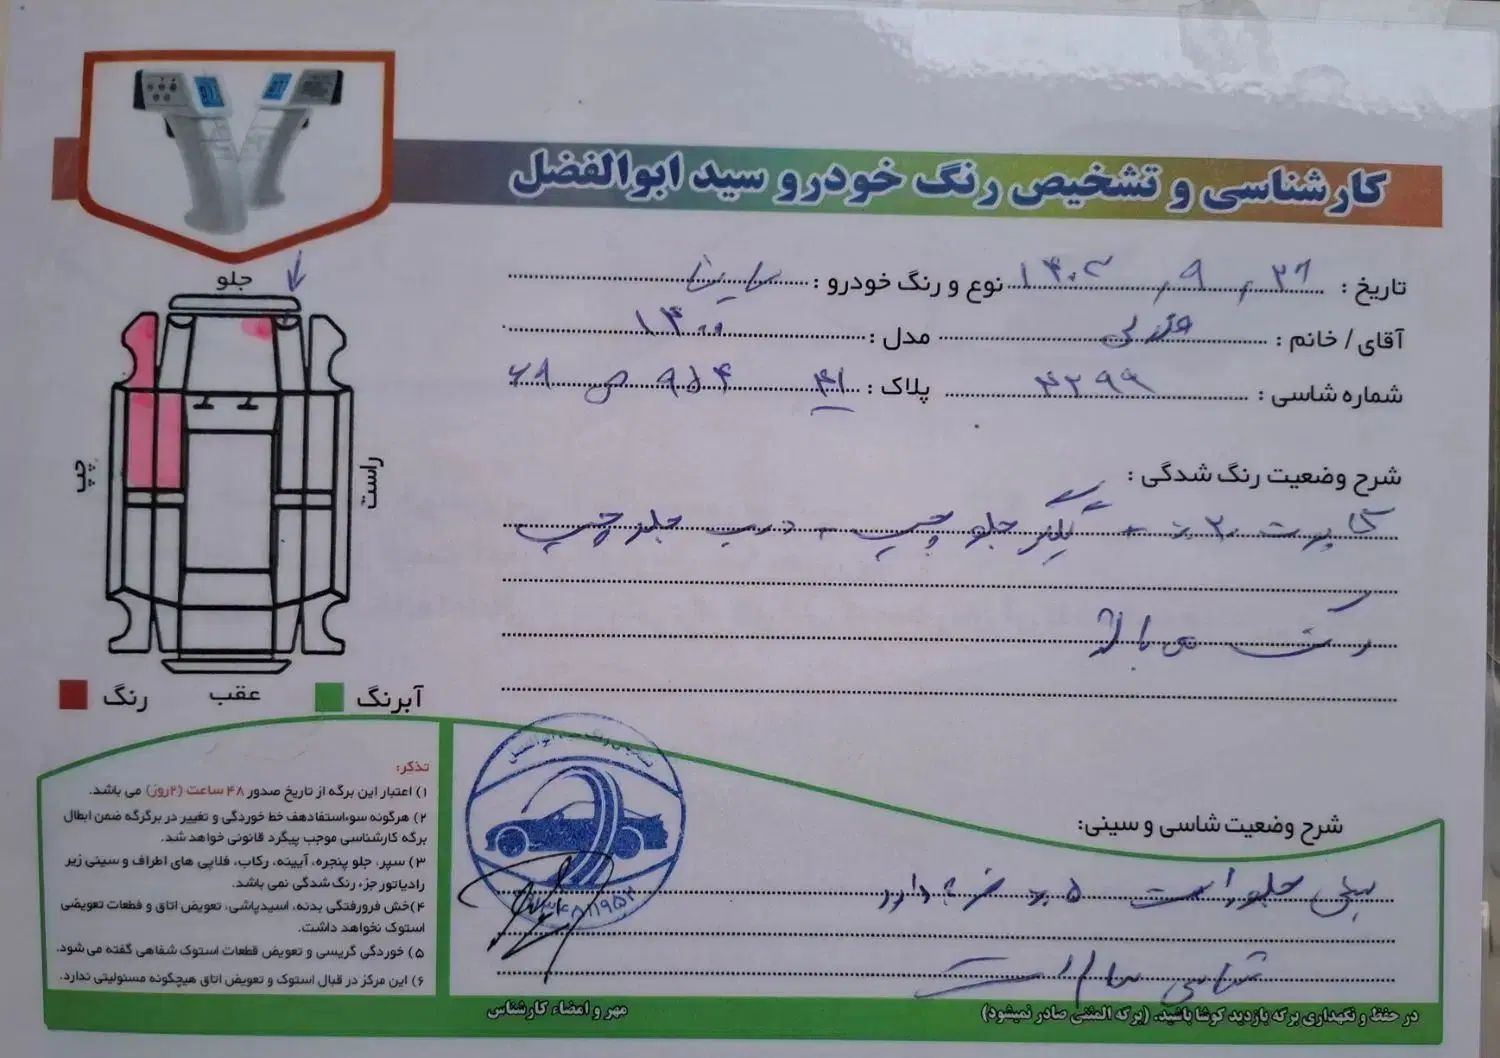 کارشناسی و تشخیص رنگ خودرو سید ابوالفضل
تاریخ : ۲۶ / ۹ / ۱۴۰۳ نوع و رنگ خودرو : ساینا
آقای / خانم : مدل : ۱۴۰۰
شماره شاسی : ۴۲۹۹ پلاک :
شرح وضعیت رنگ شدگی :
کاپوت ۲۰٪ + گلگیر جلو چپ - درب جلو چپ
رنگ می باشد
جلو
چپ
راست
عقب
رنگ
آبرنگ
تذکر:
۱) اعتبار این برگه از تاریخ صدور ۴۸ ساعت (۲روز) می باشد.
۲) هرگونه سوءاستفادهف خط خوردگی و تغییر در برگرگه ضمن ابطال
برگه کارشناسی موجب پیگرد قانونی خواهد شد.
۳) سپر، جلو پنجره، آیینه، رکاب، فلاپی های اطراف و سینی زیر
رادیاتور جزء رنگ شدگی نمی باشد.
۴)خش فرورفتگی بدنه، اسیدپاشی، تعویض اتاق و قطعات تعویضی
استوک نخواهد داشت.
۵) خوردگی گریسی و تعویض قطعات استوک شفاهی گفته می شود.
۶) این مرکز در قبال استوک و تعویض اتاق هیچگونه مسئولیتی ندارد.
شرح وضعیت شاسی و سینی:
سینی جلو راست ۵٪ ضربه دارد
شاسی سالم است
مهر و امضاء کارشناس
در حفظ و نگهداری برگه بازدید کوشا باشید. (برگه المثنی صادر نمیشود)